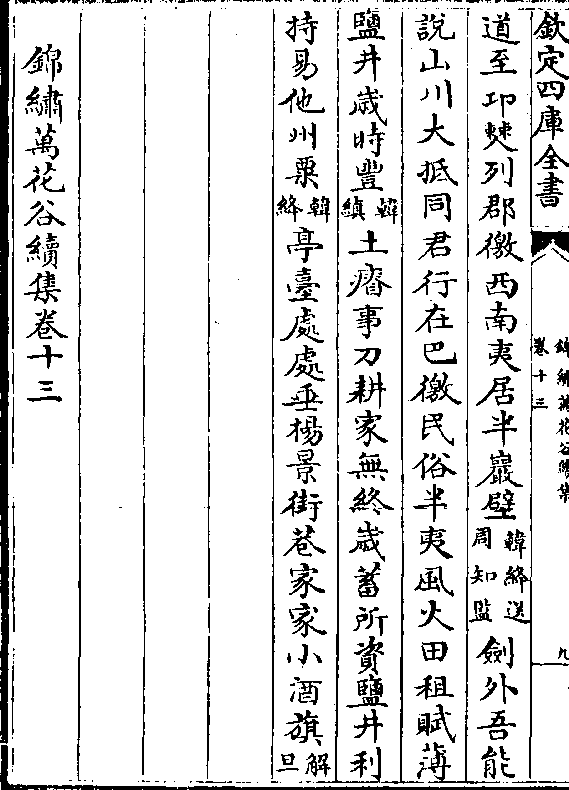 欽定四庫全書
錦繡萬花谷續集
卷十三
九
道至邛僰列郡徼西南夷居半巖壁韓絳送周知監劍外吾能
說山川大抵同君行在巴徼民俗半夷風火田租賦薄
鹽井歳時豐韓縝土瘠事刀耕家無終歳蓄所資鹽井利
持易他州粟韓絳亭臺處處垂楊景街巷家家小酒旗解旦
錦繡萬花谷續集卷十三